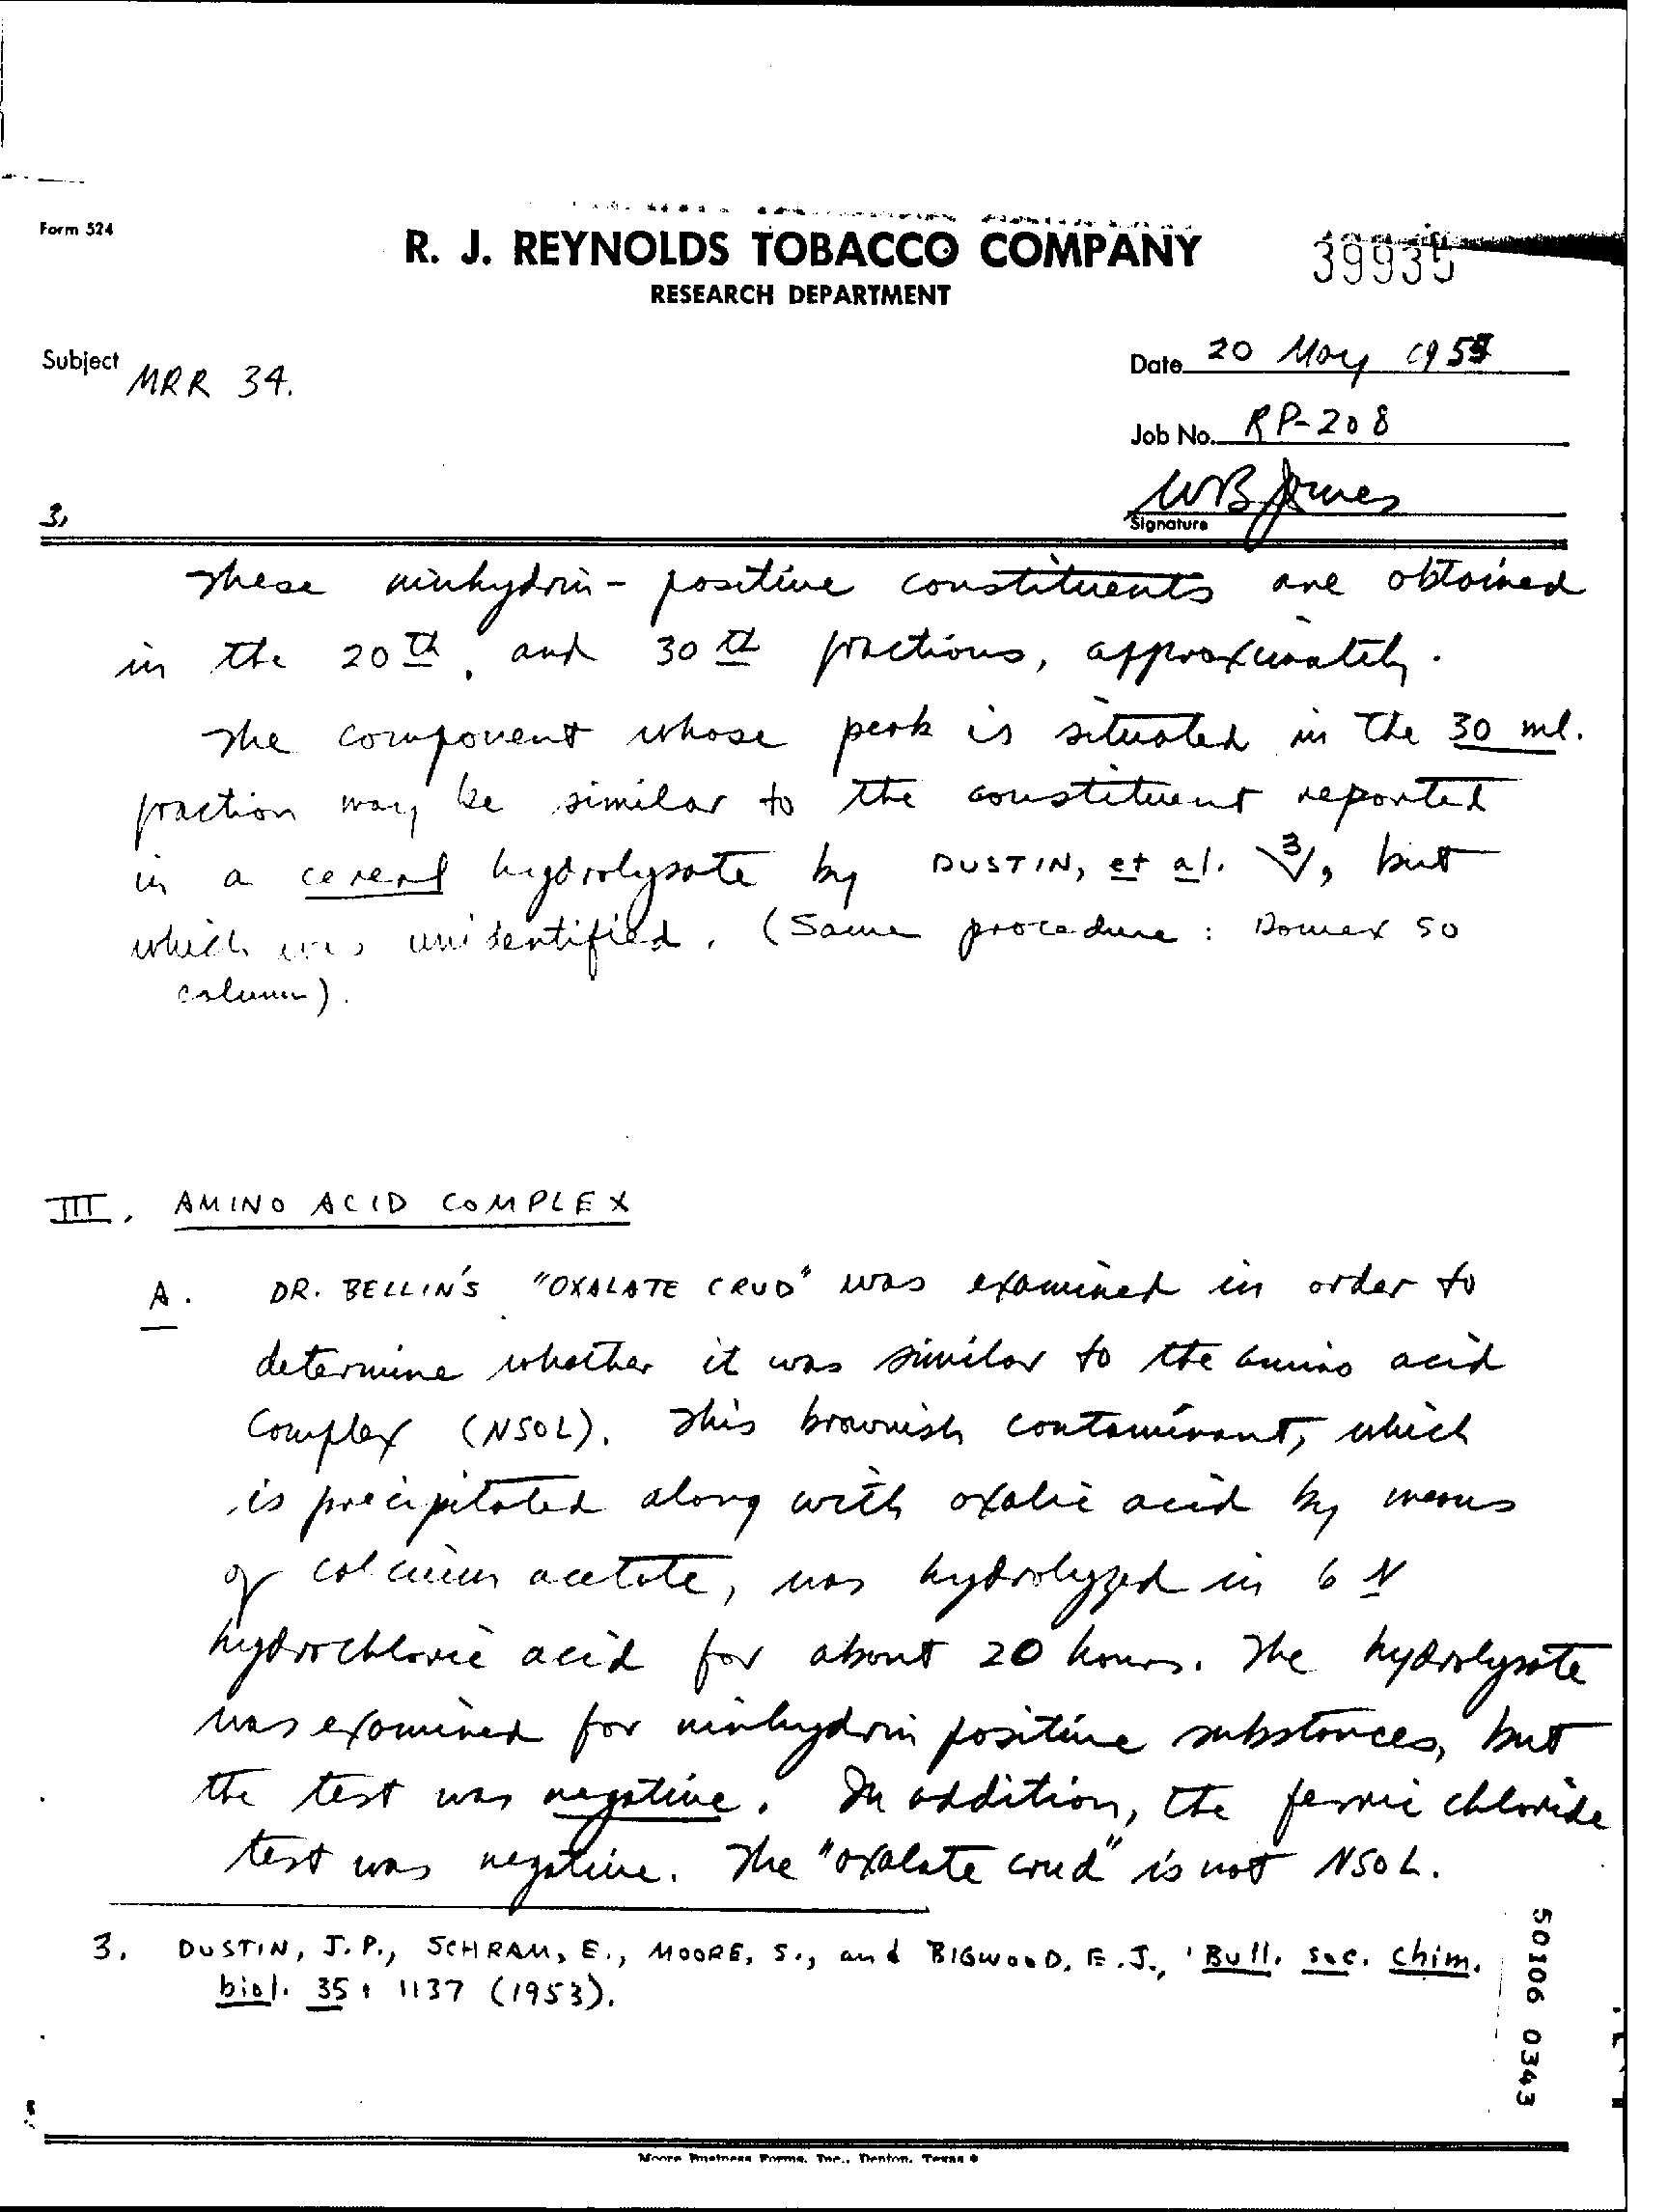 Form 524
R. J. REYNOLDS TOBACCO COMPANY
39935
RESEARCH DEPARTMENT
Subject MRR 34.
Date 20 May 1955
Job No. RP-208
WB Jones
Signature
3,
These ninhydrin-positive constituents are obtained
in the 20th, and 30th fractions, approximately.
The component whose peak is situated in the 30 ml.
fraction may be similar to the constituent reported
in a cereal hydrolysate by DUSTIN, et al. 3/, but
which was unidentified. (Same procedure: Dowex 50
column).
III. AMINO ACID COMPLEX
A. DR. BELLIN'S "OXALATE CRUD" was examined in order to
determine whether it was similar to the amino acid
complex (NSOL). This brownish contaminant, which
is precipitated along with oxalic acid by means
of calcium acetate, was hydrolyzed in 6 N
hydrochloric acid for about 20 hours. The hydrolysate
was examined for ninhydrin positive substances, but
the test was negative. In addition, the ferric chloride
test was negative. The "oxalate crud" is not NSOL.
3. DUSTIN, J.P., SCHRAM, E., MOORE, S., and BIGWOOD, E.J., Bull. soc. chim.
biol. 35: 1137 (1953).
50106 0343
Moore Business Forms, Inc., Denton, Texas